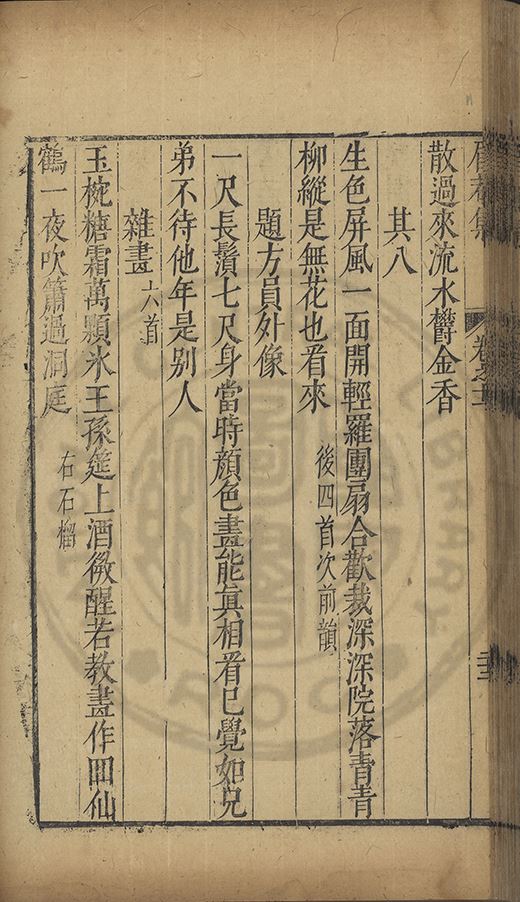 卷之十
散過來流水欝金香
其八
生色屏風一面開輕羅團扇合歡裁深深院落青青
柳縱是無花也看來 後四首次前韻
題方員外像
一尺長鬚七尺身當時顔色畫能真相看已覺如兄
弟不待他年是别人
雜畫 六首
玉椀糖霜萬顆氷王孫筵上酒微醒若教畫作回仙
鶴一夜吹簫過洞庭 右石榴